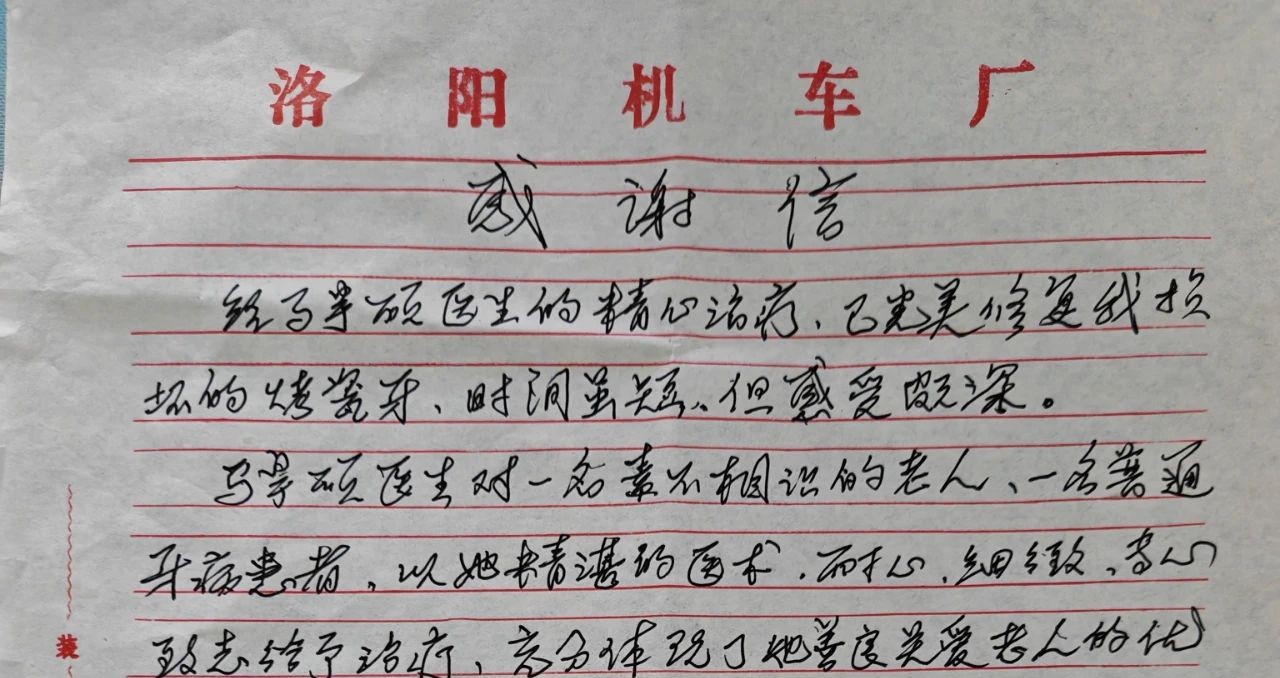 洛阳机车厂
感谢信
经马掌硕医生的精心治疗、已完美修复我损
坏的烤瓷牙、时间虽短、但感受颇深。
马掌硕医生对一名素不相识的老人、一名普通
牙病患者，以她精湛的医术、耐心、细致、专心
致志给予治疗、充分体现了她善良关爱老人的优
装